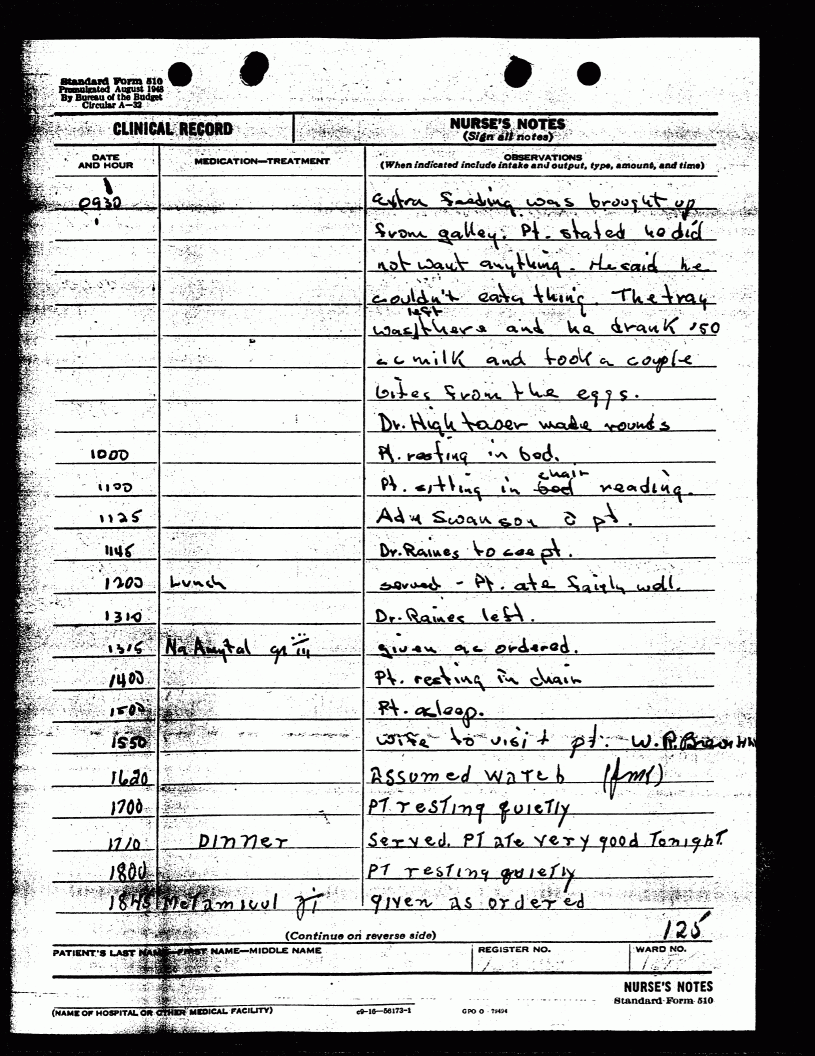 Standard Form 510
Promulgated August 1948
By Bureau of the Budget
Circular A—32
CLINICAL RECORD
NURSE'S NOTES
(Sign all notes)
DATE AND HOUR
MEDICATION—TREATMENT
OBSERVATIONS
(When indicated include intake and output, type, amount, and time)
0930 extra feeding was brought up
from galley. Pt. stated he did
not want anything. He said he
couldn't eat a thing. The tray
was left there and he drank 150
cc milk and took a couple
bites from the eggs.
Dr. Hightower made rounds
1000 Pt. resting in bed.
1100 Pt. sitting in bed chair reading.
1125 Adm Swanson c̄ pt.
1145 Dr. Raines to see pt.
1200 Lunch served - Pt. ate fairly well.
1310 Dr. Raines left.
1315 Na Amytal gr iii given as ordered.
1400 Pt. resting in chair
1500 Pt. asleep.
1550 wife to visit pt. W.R.
1620 Assumed watch
1700 PT resting quietly
1710 Dinner Served. PT ate very good Tonight.
1800 PT resting quietly
1845 Metamicul given as ordered
(Continue on reverse side)
125
PATIENT'S LAST NAME—FIRST NAME—MIDDLE NAME
REGISTER NO.
WARD NO.
NURSE'S NOTES
Standard Form 510
(NAME OF HOSPITAL OR OTHER MEDICAL FACILITY)
c9—16—56173-1
GPO O 79494